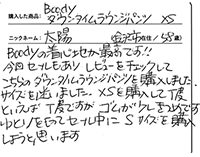 購入した商品： Boody ダウンタイムラウンジパンツ XS
ニックネーム： 太陽 （金沢市在住 / 58歳）
Boodyの着心地が最高です!!
今回セールもあり レビューをチェックして
こちらのダウンタイムラウンジパンツを購入しました。
サイズを迷いました。XSを購入して丁度
といえば丁度ですが ゴムがクルをつので
ゆとりをもって セール中に Sサイズを購入
しようと思います